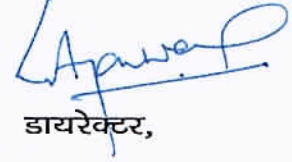 डायरेक्टर,